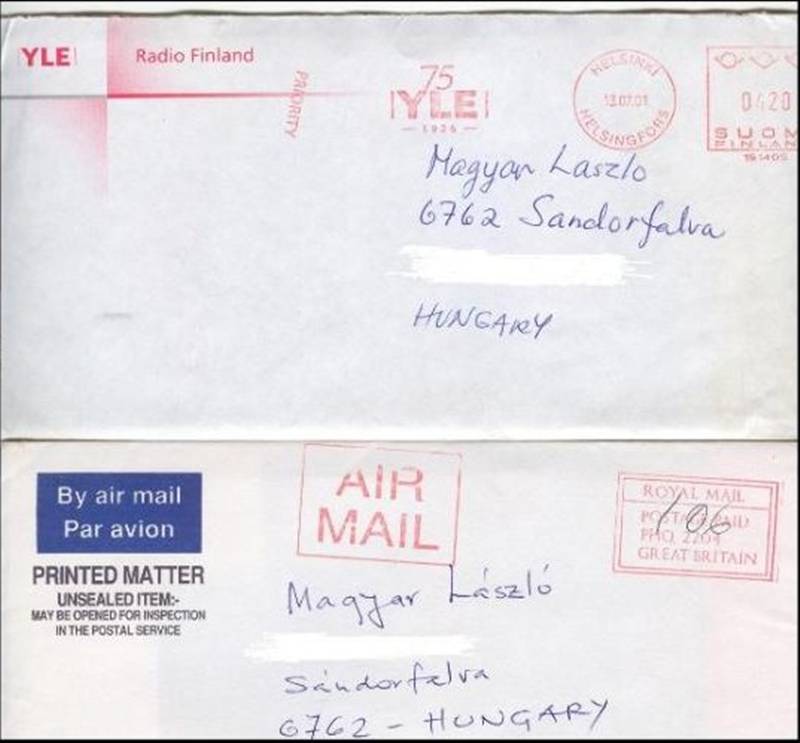 YLE Radio Finland
PRIORITY
75
YLE
1926
HELSINKI
13.07.01
HELSINGFORS
0420
SUOM
FINLAN
Magyar Laszlo
6762 Sandorfalva
HUNGARY
By air mail
Par avion
PRINTED MATTER
UNSEALED ITEM:-
MAY BE OPENED FOR INSPECTION
IN THE POSTAL SERVICE
AIR
MAIL
ROYAL MAIL
POSTAGE PAID
PHQ 2204
GREAT BRITAIN
106
Magyar László
Sándorfalva
6762 - HUNGARY